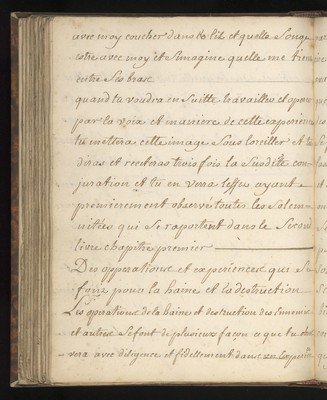 avec moy coucher dans le lit et quelle songe
estre avec moy et simagine quelle me tient
entre ses bras
quand tu voudra en suitte travailler et operer
par la voia et maniere de cette experience
tu mettera cette image sous loreiller et tu
diras et reciteras trois fois la susdite con-
juration et tu en vera leffet ayant
premierement observé toutte les solem-
nitées qui se rapportent dans le second
livre chapitre premier
Des opperations et experiences qui se
font pour la haine et la destruction
Les operations de la haine et destruction des ennemis
et autres se font de plusieurs façon ce que tu obser
vera avec diligence et fidellement dans